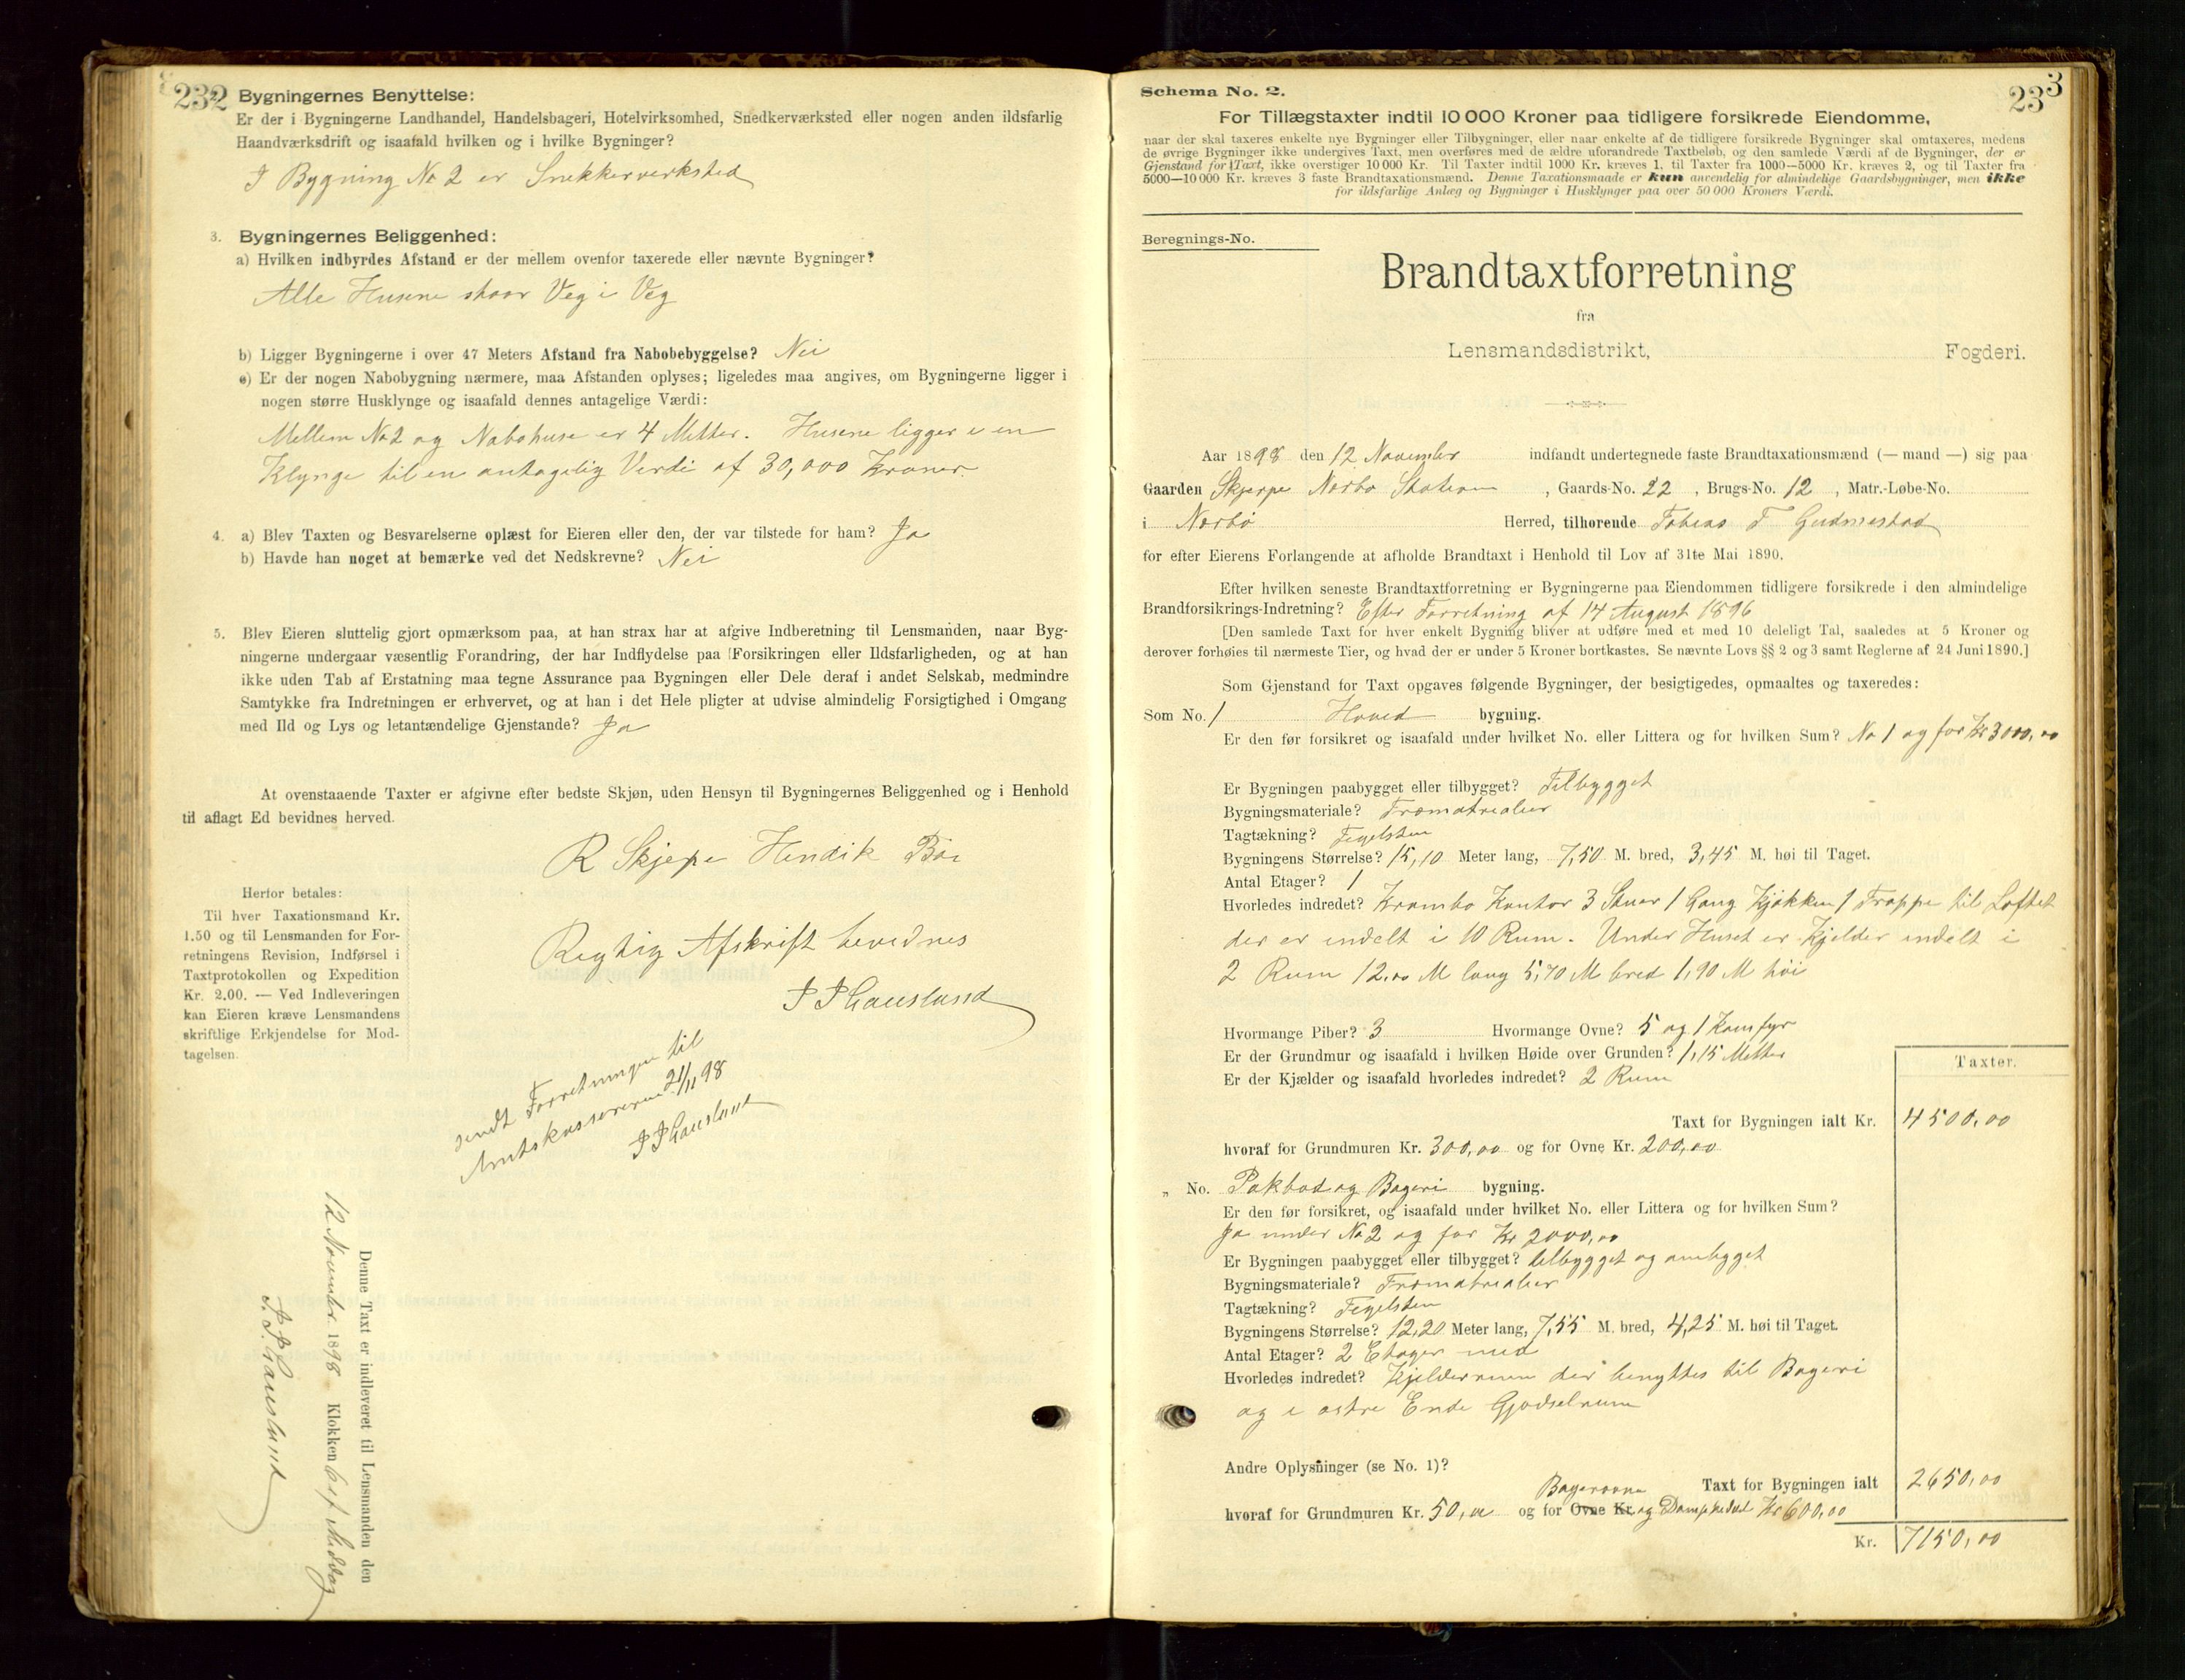 232
Bygningernes Benyttelse:
Er der i Bygningerne Landhandel, Handelsbageri, Hotelvirksomhed, Snedkerværksted eller nogen anden ildsfarlig
Haandværksdrift og isaafald hvilken og i hvilke Bygninger?
I Bygning No 2 er Snekkerverksted
3. Bygningernes Beliggenhed:
a) Hvilken indbyrdes Afstand er der mellem ovenfor taxerede eller nævnte Bygninger?
Alle Husene staar Veg i Veg
b) Ligger Bygningerne i over 47 Meters Afstand fra Nabobebyggelse? Nei
c) Er der nogen Nabobygning nærmere, maa Afstanden oplyses; ligeledes maa angives, om Bygningerne ligger i
nogen større Husklynge og isaafald dennes antagelige Værdi:
Mellem No 2 og Nabohuse er 4 Metter. Husene ligger i en
Klynge til en antagelig Verdi af 30,000 Kroner.
4. a) Blev Taxten og Besvarelserne oplæst for Eieren eller den, der var tilstede for ham? Ja
b) Havde han noget at bemærke ved det Nedskrevne? Nei
5. Blev Eieren sluttelig gjort opmærksom paa, at han strax har at afgive Indberetning til Lensmanden, naar Byg-
ningerne undergaar væsentlig Forandring, der har Indflydelse paa Forsikringen eller Ildsfarligheden, og at han
ikke uden Tab af Erstatning maa tegne Assurance paa Bygningen eller Dele deraf i andet Selskab, medmindre
Samtykke fra Indretningen er erhvervet, og at han i det Hele pligter at udvise almindelig Forsigtighed i Omgang
med Ild og Lys og letantændelige Gjenstande? Ja
At ovenstaaende Taxter er afgivne efter bedste Skjøn, uden Hensyn til Bygningernes Beliggenhed og i Henhold
til aflagt Ed bevidnes herved.
R Skjepe Hendik Bö
Herfor betales:
Til hver Taxationsmand Kr.
1.50 og til Lensmanden for For-
retningens Revision, Indførsel i
Taxtprotokollen og Expedition
Kr. 2.00. — Ved Indleveringen
kan Eieren kræve Lensmandens
skriftlige Erkjendelse for Mod-
tagelsen.
Rigtig Afskrift bevidnes
P P Gausland
sendt Forretningen til
Amtskassereren 21/11 98
P P Gausland
Denne Taxt er indleveret til Lensmanden den
12 November 1898 Klokken 6 ef Midag
P. P. Gausland
Schema No. 2.
233
For Tillægstaxter indtil 10 000 Kroner paa tidligere forsikrede Eiendomme,
naar der skal taxeres enkelte nye Bygninger eller Tilbygninger, eller naar enkelte af de tidligere forsikrede Bygninger skal omtaxeres, medens
de øvrige Bygninger ikke undergives Taxt, men overføres med de ældre uforandrede Taxtbeløb, og den samlede Værdi af de Bygninger, der er
Gjenstand for Taxt, ikke overstiger 10 000 Kr. Til Taxter indtil 1000 Kr. kræves 1, til Taxter fra 1000—5000 Kr. kræves 2, og til Taxter fra
5000—10 000 Kr. kræves 3 faste Brandtaxationsmænd. Denne Taxationsmaade er kun anvendelig for almindelige Gaardsbygninger, men ikke
for ildsfarlige Anlæg og Bygninger i Husklynger paa over 50 000 Kroners Værdi.
Beregnings-No.
Brandtaxtforretning
fra
Lensmandsdistrikt, Fogderi.
Aar 1898 den 12 November indfandt undertegnede faste Brandtaxationsmænd (— mand —) sig paa
Gaarden Skjerpe Nærbo Station, Gaards-No. 22, Brugs-No. 12, Matr.-Løbe-No.
i Nærbö Herred, tilhørende Tobias T Gudmestad
for efter Eierens Forlangende at afholde Brandtaxt i Henhold til Lov af 31te Mai 1890.
Efter hvilken seneste Brandtaxtforretning er Bygningerne paa Eiendommen tidligere forsikrede i den almindelige
Brandforsikrings-Indretning? Efter Forretning af 14 August 1896
[Den samlede Taxt for hver enkelt Bygning bliver at udføre med et med 10 deleligt Tal, saaledes at 5 Kroner og
derover forhøies til nærmeste Tier, og hvad der er under 5 Kroner bortkastes. Se nævnte Lovs §§ 2 og 3 samt Reglerne af 24 Juni 1890.]
Som Gjenstand for Taxt opgaves følgende Bygninger, der besigtigedes, opmaaltes og taxeredes:
Som No. 1 Hoved bygning.
Er den før forsikret og isaafald under hvilket No. eller Littera og for hvilken Sum? No 1 og for Kr 3000,00
Er Bygningen paabygget eller tilbygget? Tilbygget
Bygningsmateriale? Træmatrealier
Tagtækning? Tegelsten
Bygningens Størrelse? 15,10 Meter lang, 7,50 M. bred, 3,45 M. høi til Taget.
Antal Etager? 1
Hvorledes indredet? Krambo Kontor 3 Stuer 1 Gang Kjøkken 1 Trappe til Loftet
der er indelt i 10 Rum. Under Huset er Kjelder indelt i
2 Rum 12,00 M lang 5,70 M bred 1,90 M höi
Hvormange Piber? 3 Hvormange Ovne? 5 og 1 Komfyr
Er der Grundmur og isaafald i hvilken Høide over Grunden? 1,15 Metter
Er der Kjælder og isaafald hvorledes indredet? 2 Rum
Taxter.
Taxt for Bygningen ialt Kr. 4500,00
hvoraf for Grundmuren Kr. 300,00 og for Ovne Kr. 200,00
„ No. Pakbod og Bageri bygning.
Er den før forsikret, og isaafald under hvilket No. eller Littera og for hvilken Sum?
Ja under No 2 og for Kr 2000,00
Er Bygningen paabygget eller tilbygget? tilbygget og ombygget
Bygningsmateriale? Træmatrealier
Tagtækning? Tegelsten
Bygningens Størrelse? 12,20 Meter lang, 7,55 M. bred, 4,25 M. høi til Taget.
Antal Etager? 2 Etager med
Hvorledes indredet? Kjelderrum der benyttes til Bageri
og i østre Ende Gjødselrum
Andre Oplysninger (se No. 1)?
Bagerovne Taxt for Bygningen ialt 2650,00
hvoraf for Grundmuren Kr. 50,00 og for Ovne Kr. og Dampkedel Kr 600,00
Kr. 7150,00